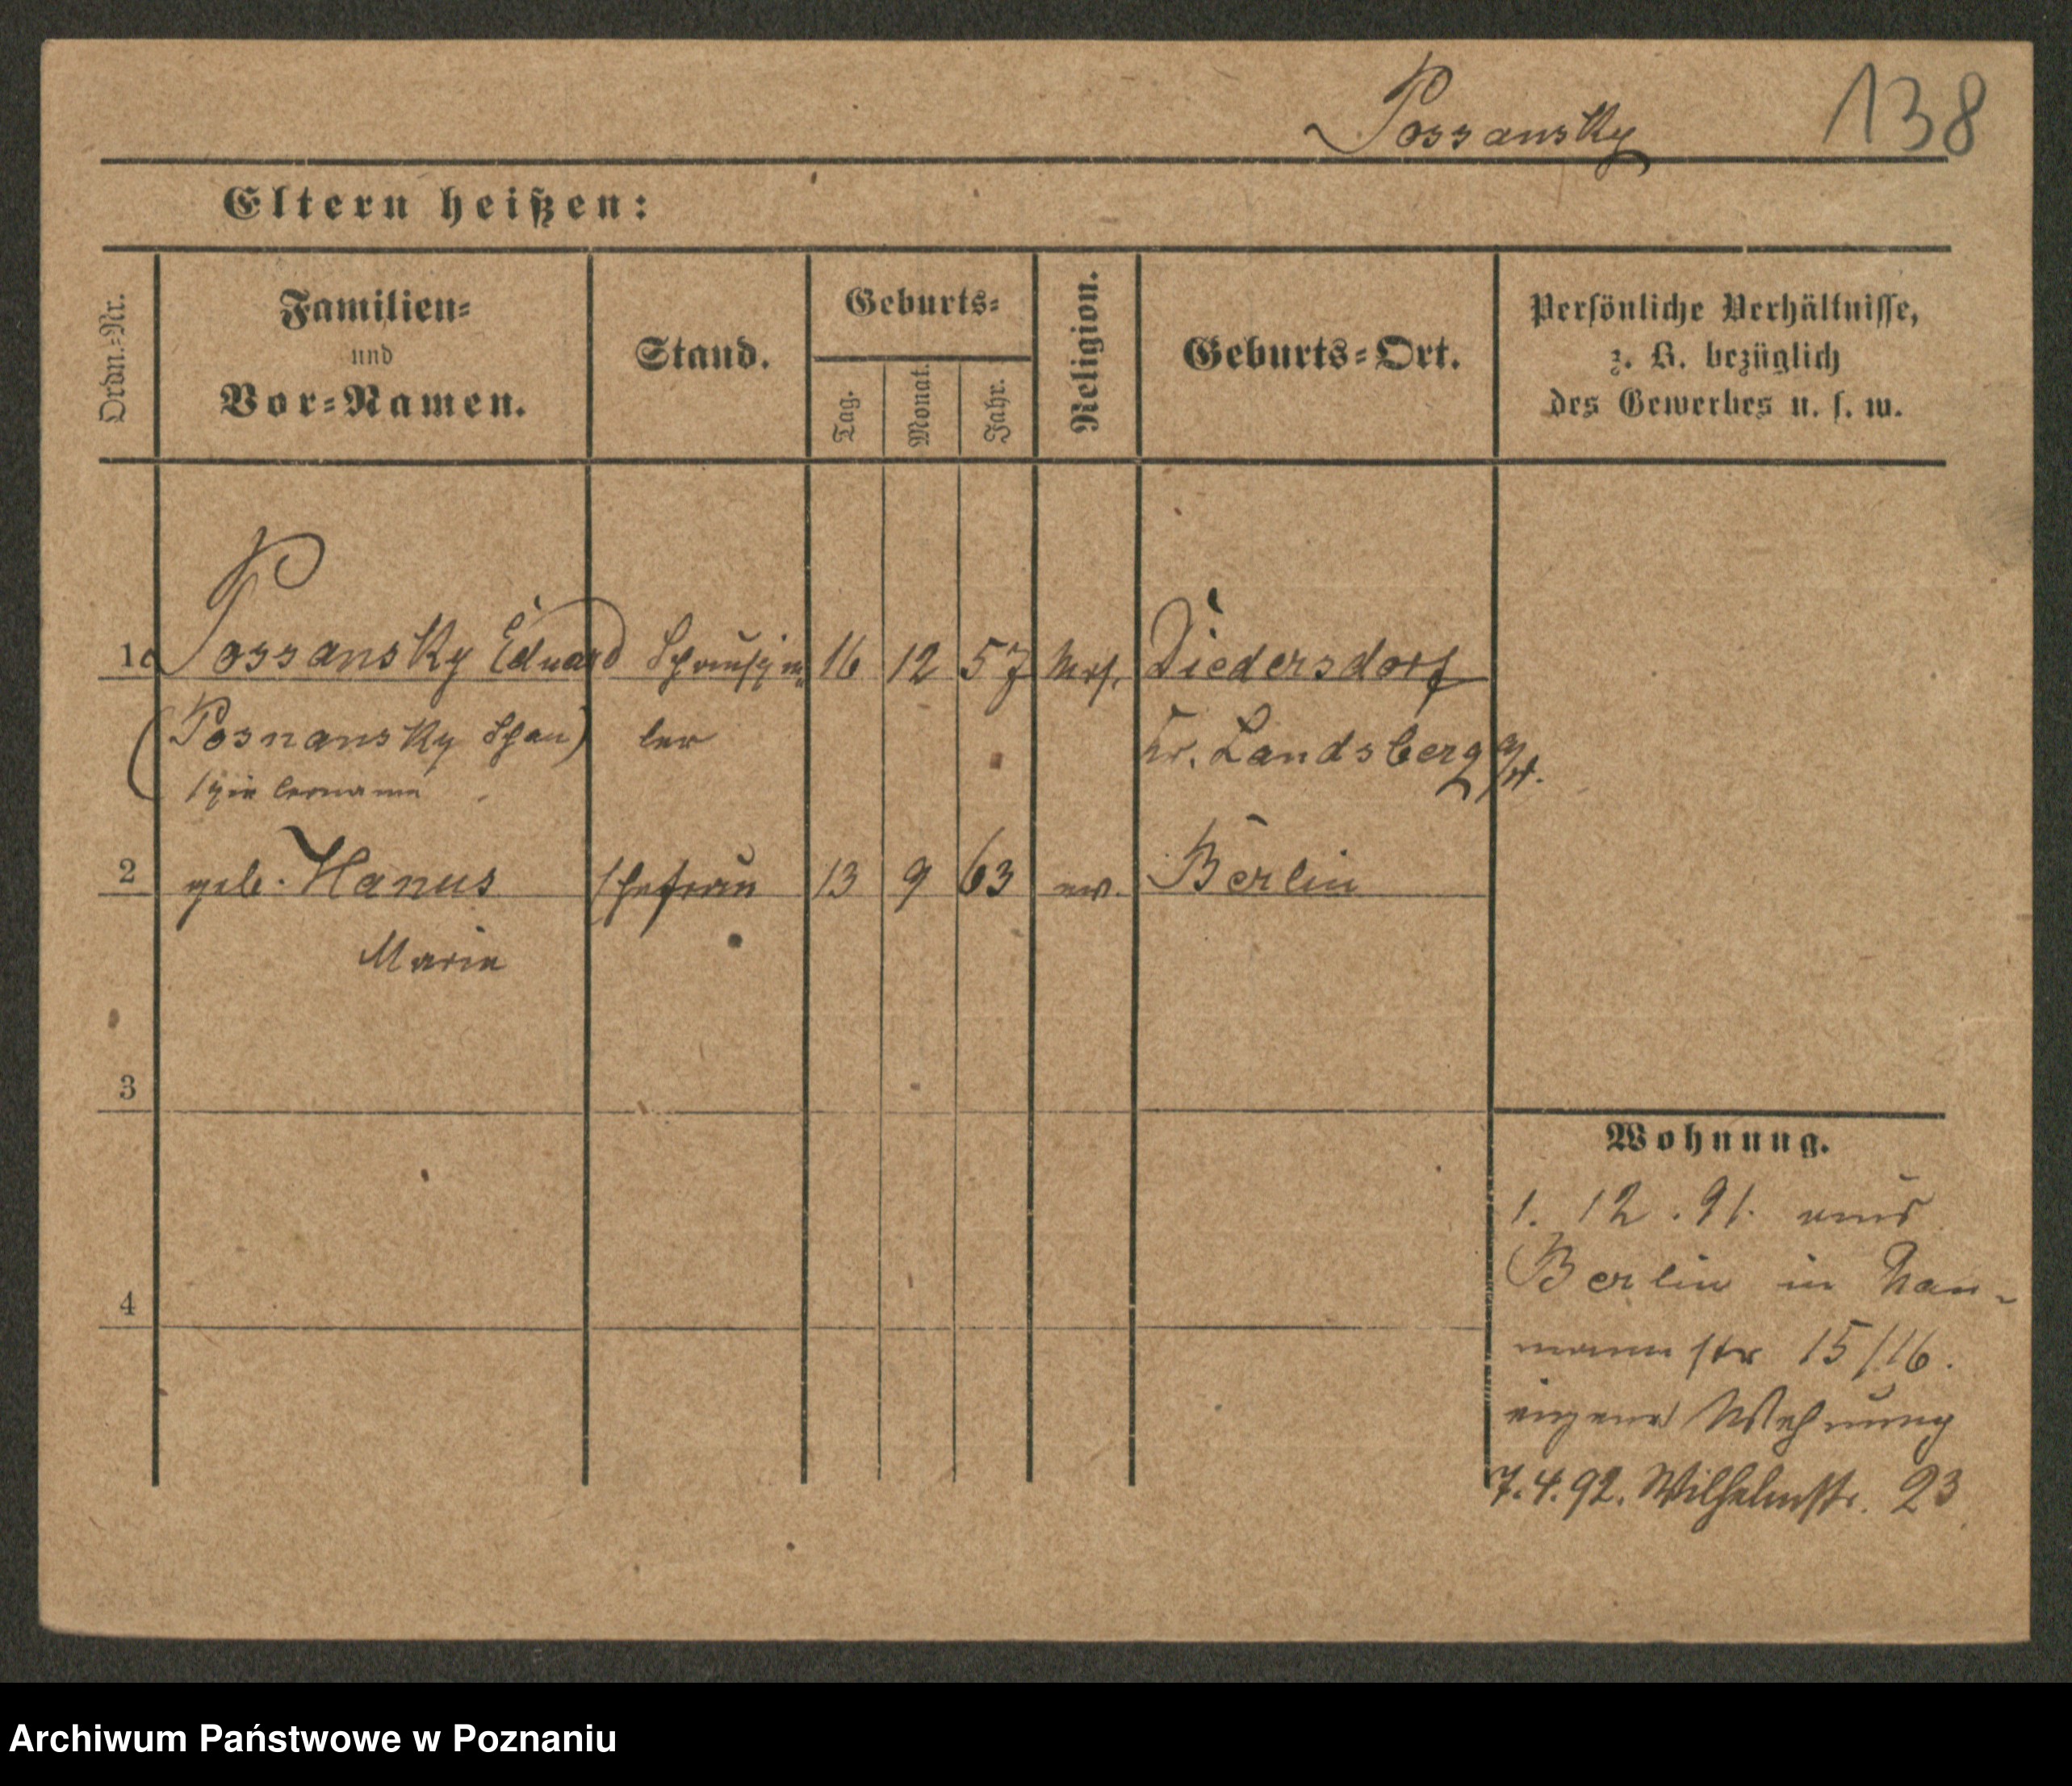 Possansky 138
Eltern heißen:
Ordn.-Nr.
Familien-
und
Vor-Namen.
Stand.
Geburts-
Tag.
Monat.
Jahr.
Religion.
Geburts-Ort.
Persönliche Verhältnisse,
z. B. bezüglich
des Gewerbes u. s. w.
1 Possansky Eduard Schauspie- 16 12 57 Diedersdorf
(Posnansky Schau) ler Kr. Landsberg
spielername
2 geb. Hanus Ehefrau 13 9 63 ev. Berlin
Marie
3
4
Wohnung.
1. 12. 91. aus
Berlin in Nau-
mannstr 15/16.
eigene Wohnung
7.4.92. Wilhelmstr. 23
Archiwum Państwowe w Poznaniu